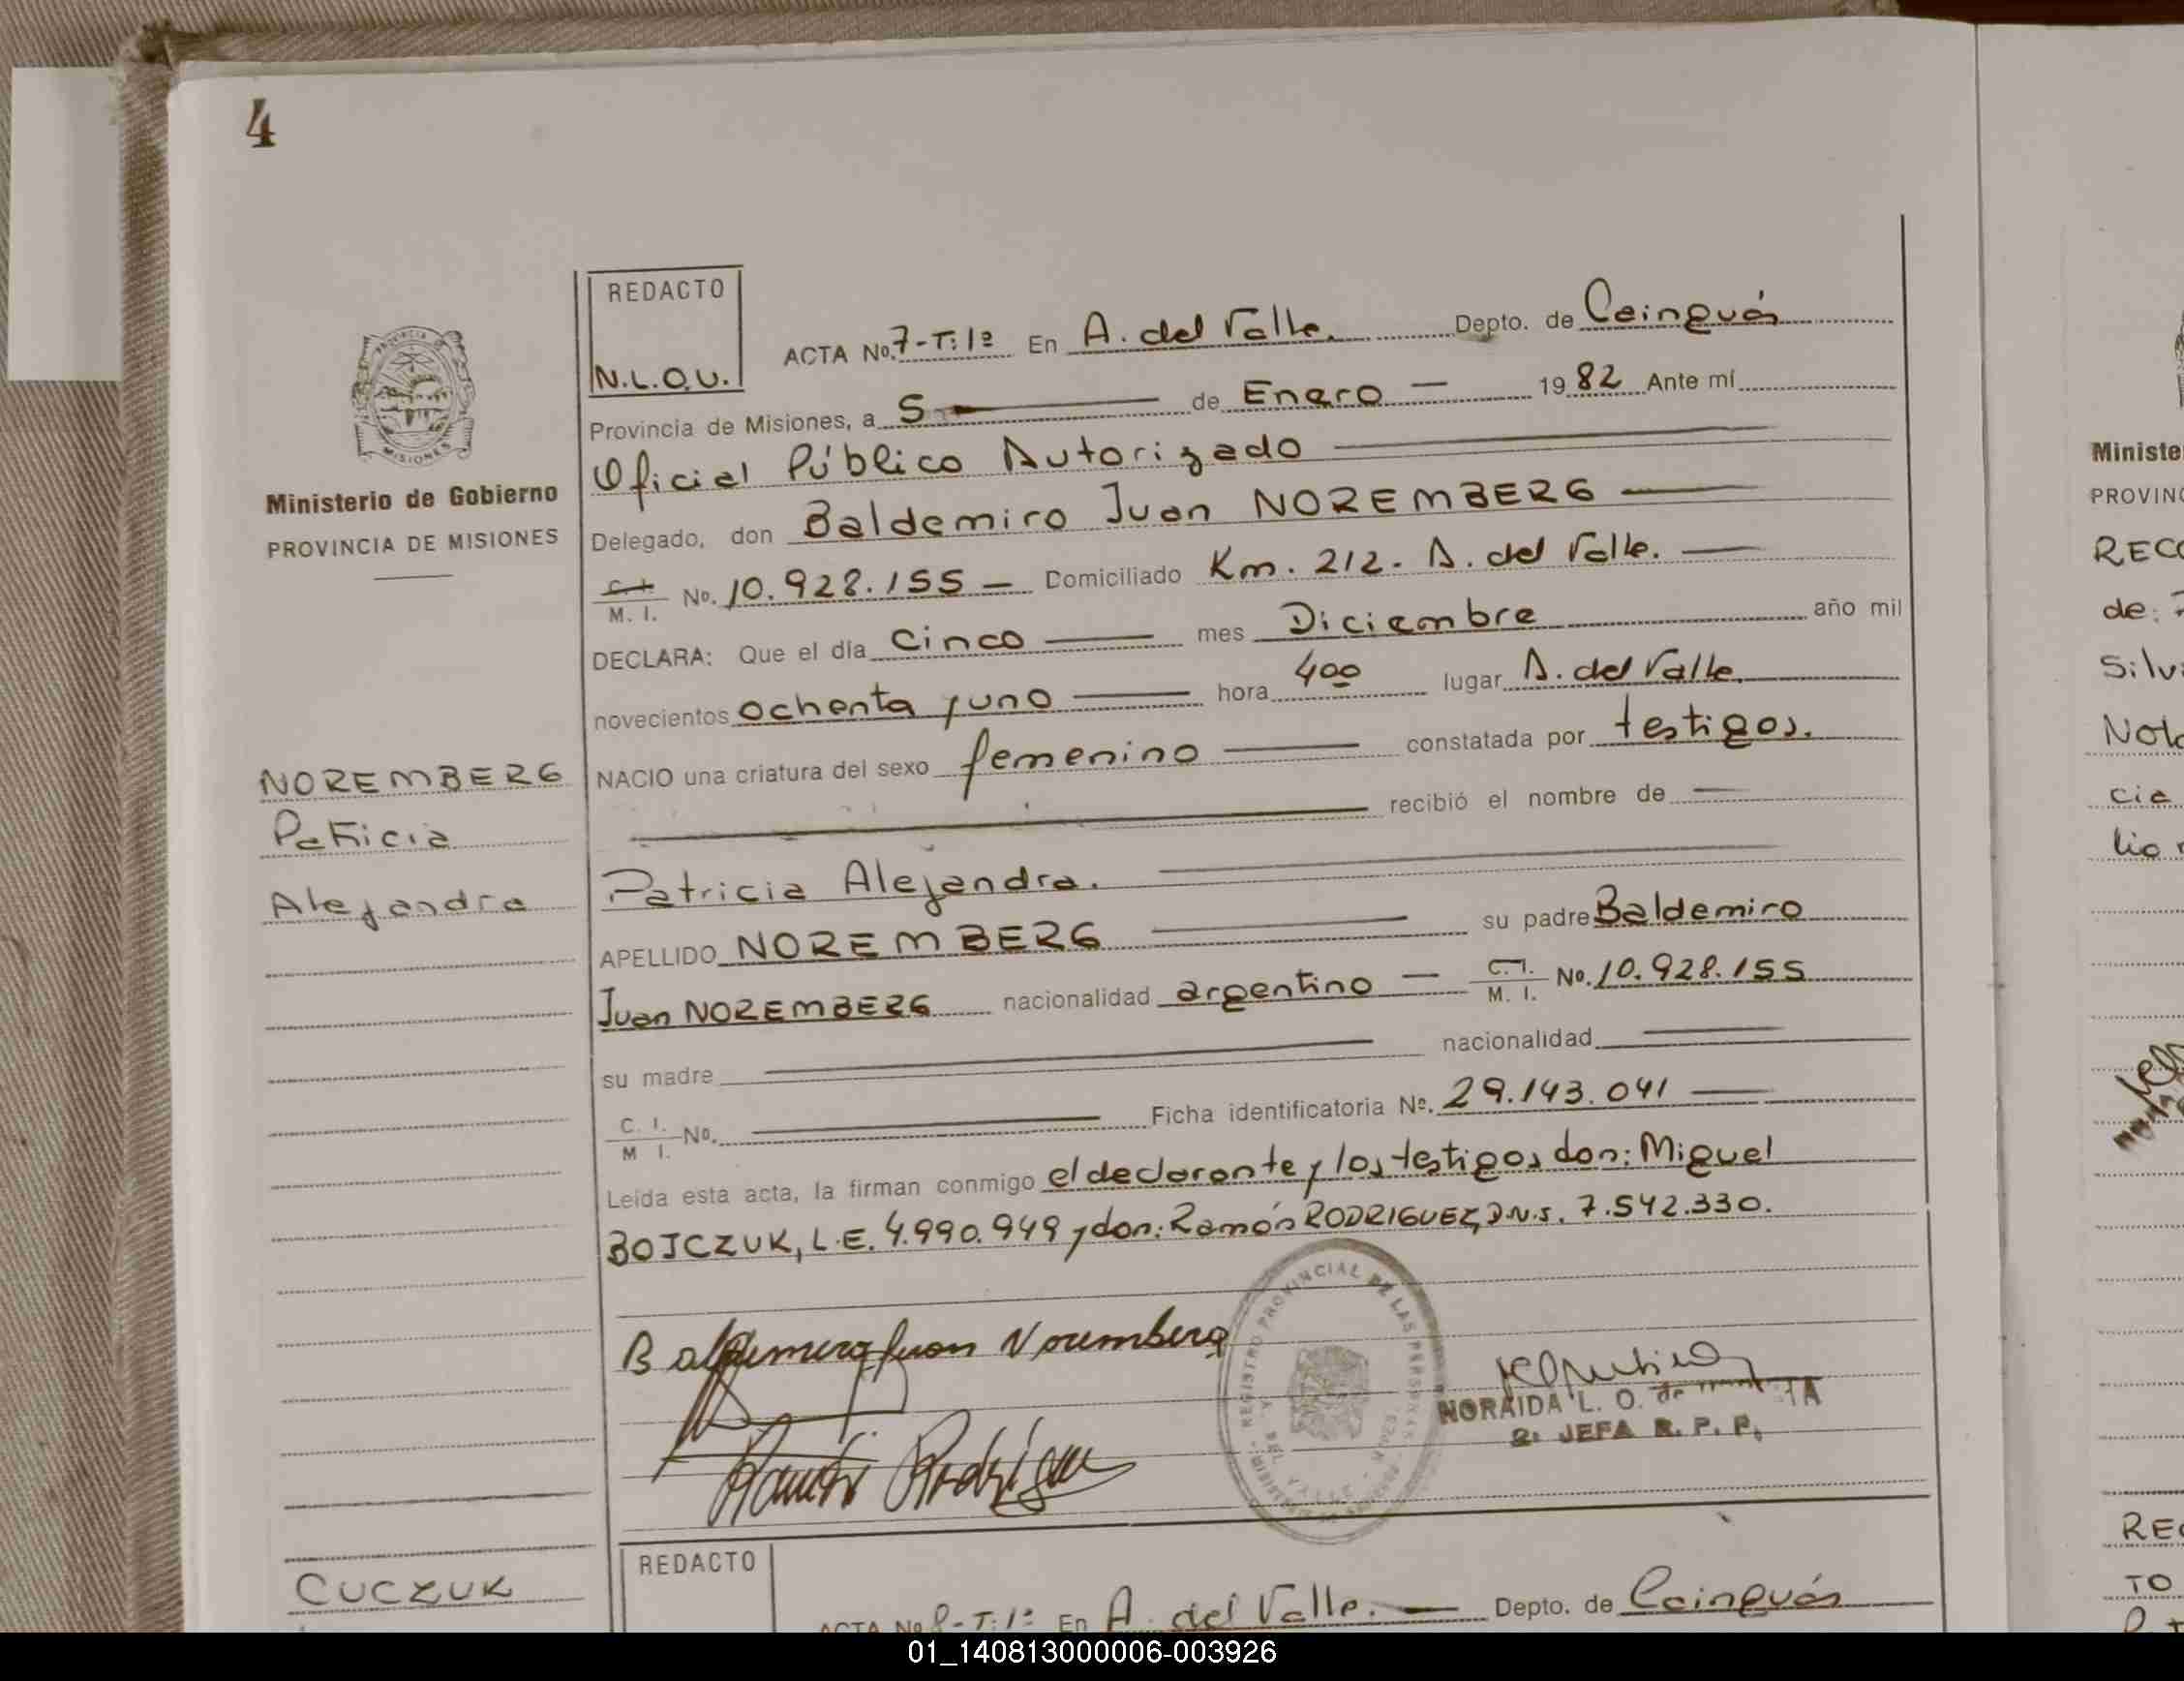 4
REDACTO
N.L.O.U.
ACTA No. 7-T:1º En A. del Valle. Depto. de Cainguás
Provincia de Misiones, a 5 de Enero 1982 Ante mí
Oficial Público Autorizado
Delegado, don Baldemiro Juan NOREMBERG
C.I. M. I. No. 10.928.155 Domiciliado Km. 212. A. del Valle.
DECLARA: Que el día Cinco mes Diciembre año mil
novecientos ochenta y uno hora 400 lugar A. del Valle.
NACIO una criatura del sexo femenino constatada por testigos.
recibió el nombre de
Patricia Alejandra.
APELLIDO NOREMBERG su padre Baldemiro
Juan NOREMBERG nacionalidad argentino C.I. M. I. No. 10.928.155
su madre nacionalidad
C. I. M I. No. Ficha identificatoria Nº. 29.143.041
Leída esta acta, la firman conmigo el declarante y los testigos don: Miguel
BOJCZUK, L.E. 4.990.949 y don: Ramón RODRIGUEZ, D.N.I. 7.542.330.
Juan Noremberg
Ramón Rodríguez
REGISTRO PROVINCIAL DE LAS PERSONAS
NORAIDA L. O. de
JEFA R. P. P.
PROVINCIA DE
MISIONES
Ministerio de Gobierno
PROVINCIA DE MISIONES
NOREMBERG
Patricia
Alejandra
REDACTO
CUCZUK
ACTA No 8-T:1º En A. del Valle. Depto. de Cainguás
Ministe
PROVINC
RECO
de:
Silvi
Noto
cia
lio
REC
TO
01_140813000006-003926